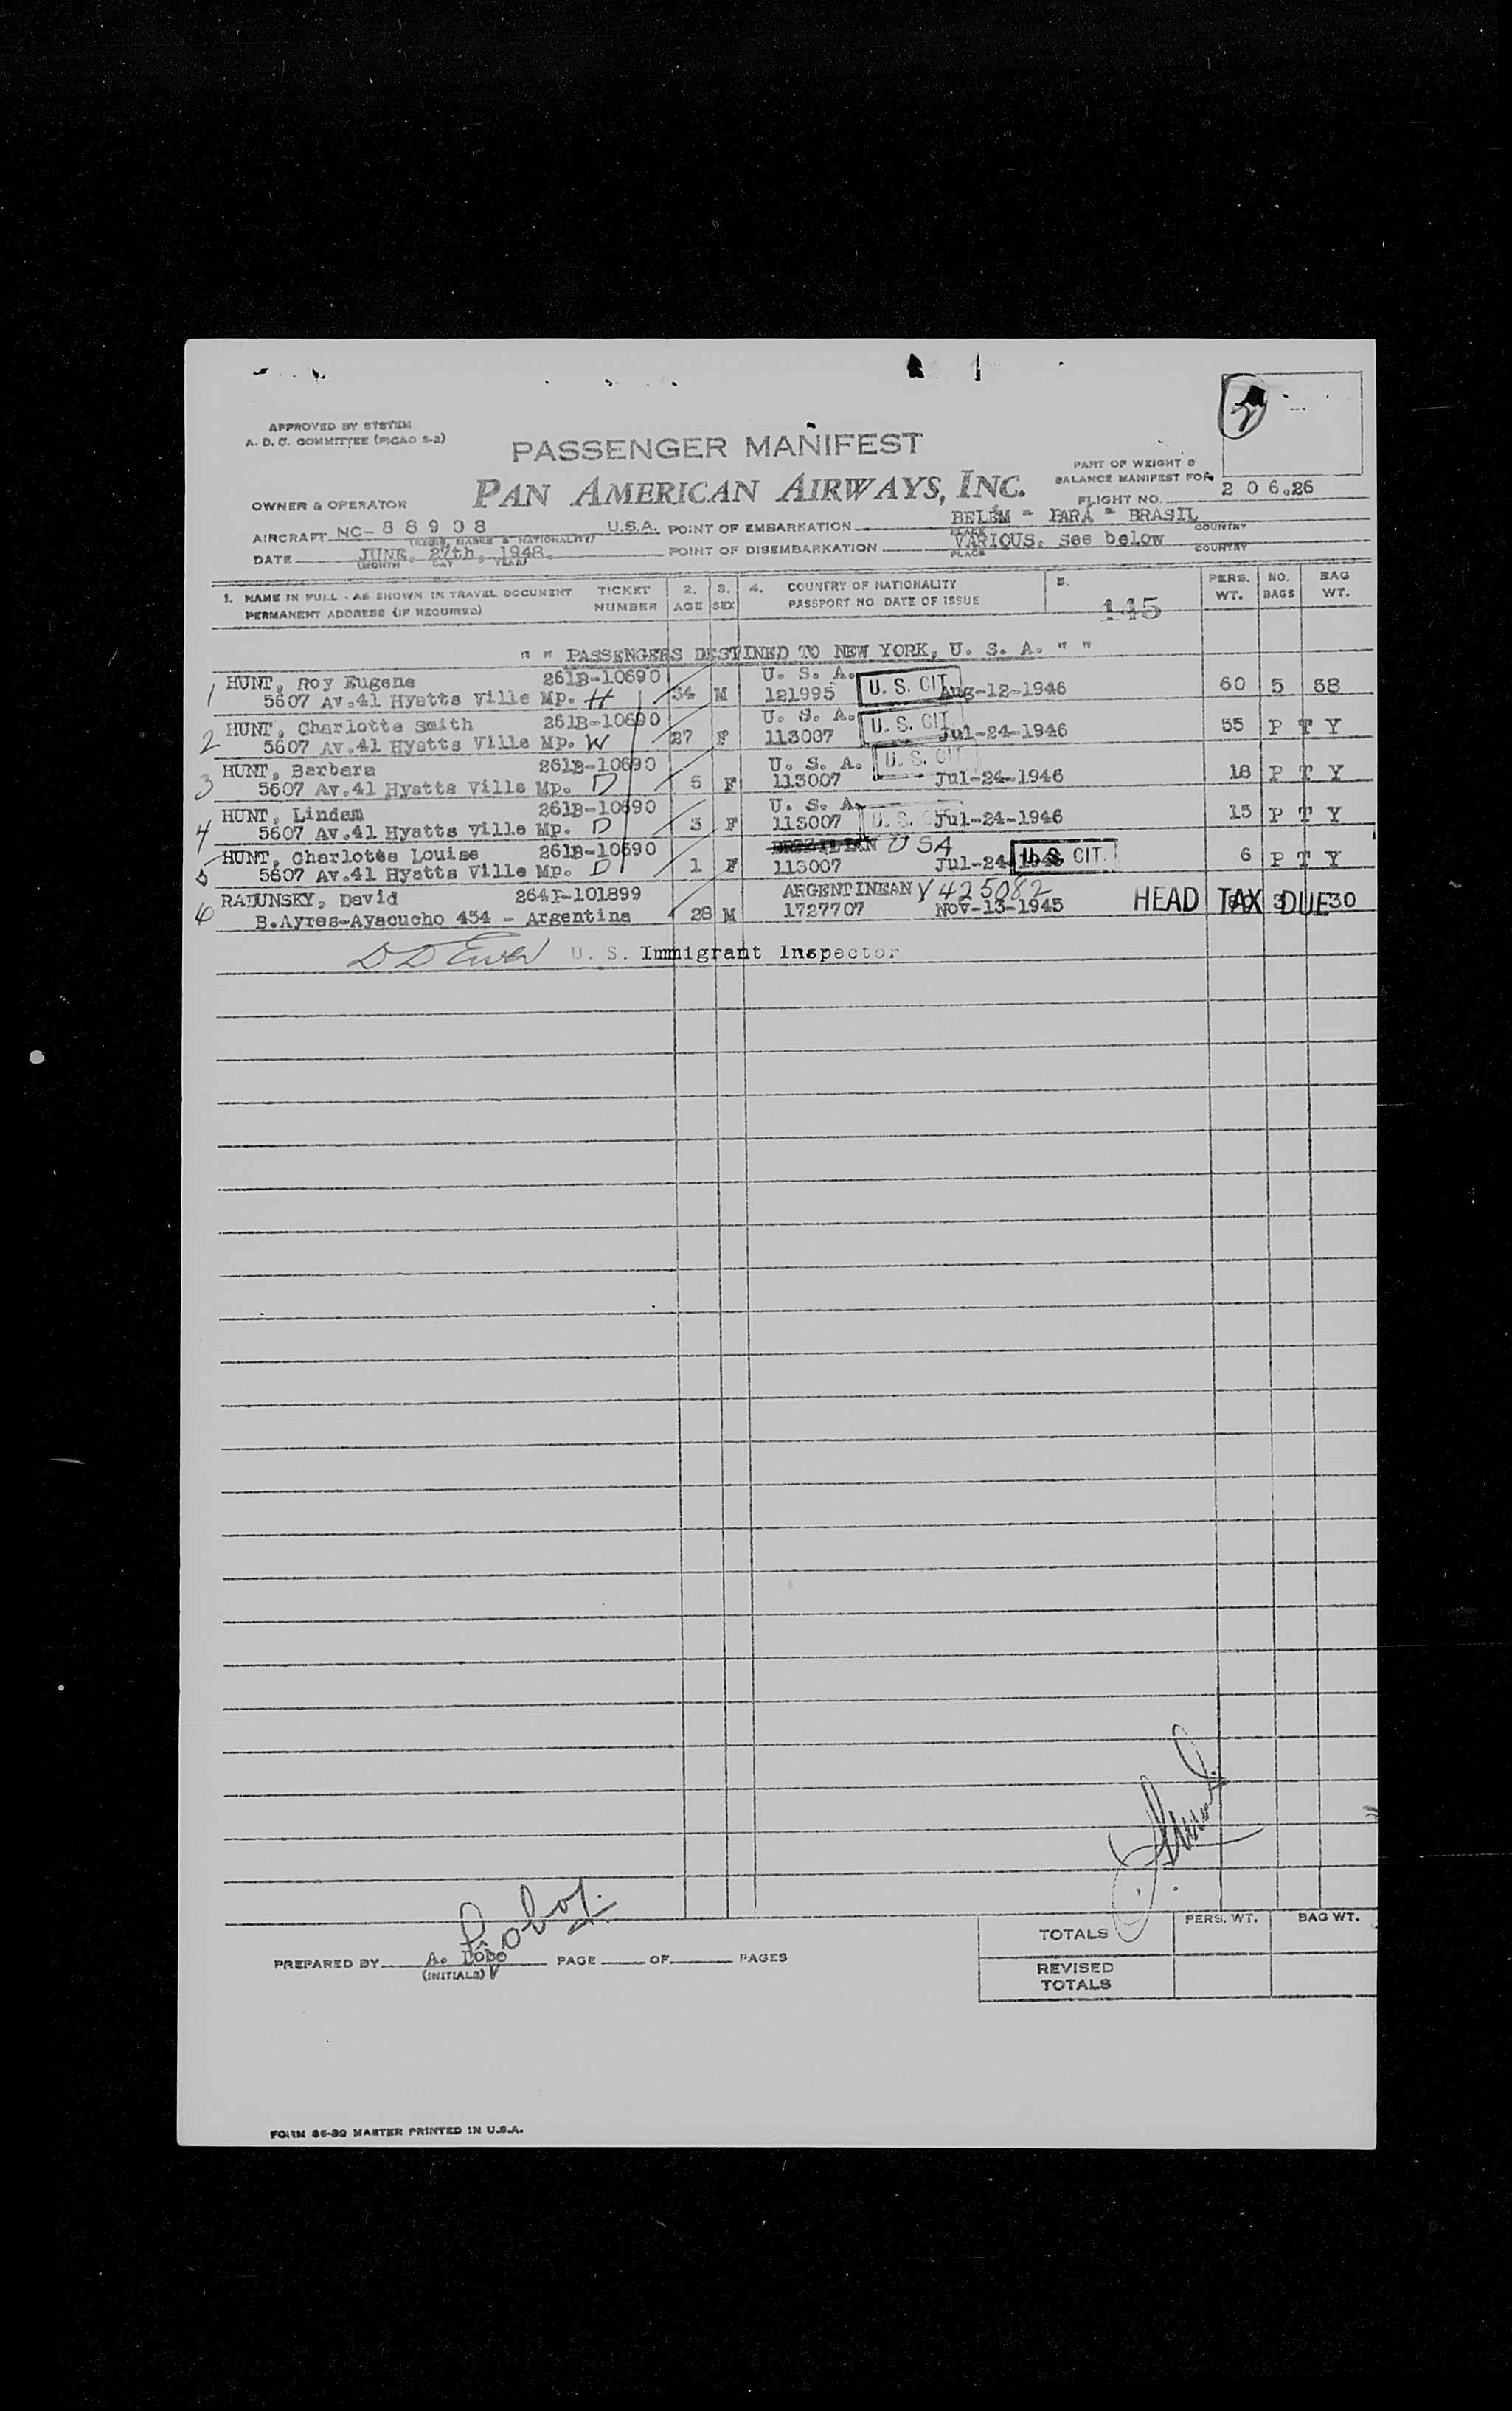 APPROVED BY SYSTEM
A. D. C. COMMITTEE (PICAO S-2)
PASSENGER MANIFEST
PAN AMERICAN AIRWAYS, INC.
PART OF WEIGHT &
BALANCE MANIFEST FOR
FLIGHT NO. 2 0 6.26
OWNER & OPERATOR
AIRCRAFT NC- 8 8 9 0 8 U.S.A. POINT OF EMBARKATION BELÉM - PARÁ - BRASIL
(REGIS. MARKS & NATIONALITY) PLACE COUNTRY
DATE JUNE, 27th, 1948. POINT OF DISEMBARKATION VARIOUS, see below
(MONTH DAY YEAR) PLACE COUNTRY
1. NAME IN FULL - AS SHOWN IN TRAVEL DOCUMENT TICKET 2. 3. 4. COUNTRY OF NATIONALITY 5. PERS. NO. BAG
PERMANENT ADDRESS (IF REQUIRED) NUMBER AGE SEX PASSPORT NO DATE OF ISSUE 145 WT. BAGS WT.
" " PASSENGERS DESTINED TO NEW YORK, U. S. A. " "
1 HUNT, Roy Eugene 261B-10690 U. S. A.
5607 Av.41 Hyatts Ville Mp. H 34 M 121995 U. S. CIT. Aug-12-1946 60 5 68
2 HUNT, Charlotte Smith 261B-10690 U. S. A.
5607 Av.41 Hyatts Ville Mp. W 27 F 113007 U. S. CIT. Jul-24-1946 55 P T Y
3 HUNT, Barbara 261B-10690 U. S. A. U. S. CIT.
5607 Av.41 Hyatts Ville Mp. D 5 F 113007 Jul-24-1946 18 P T Y
4 HUNT, Lindam 261B-10690 U. S. A.
5607 Av.41 Hyatts Ville Mp. D 3 F 113007 U. S. Jul-24-1946 15 P T Y
5 HUNT, Charlotte Louise 261B-10690 BRAZILIAN USA
5607 Av.41 Hyatts Ville Mp. D 1 F 113007 Jul-24-1946 U. S. CIT. 6 P T Y
6 RADUNSKY, David 264P-101899 ARGENTINEAN V 425082
B.Ayres-Ayacucho 454 - Argentina 28 M 1727707 Nov-13-1945 HEAD TAX DUE 30
U. S. Immigrant Inspector
TOTALS PERS. WT. BAG WT.
PREPARED BY A. Lôbo PAGE OF PAGES
(INITIALS)
REVISED
TOTALS
FORM 86-39 MASTER PRINTED IN U.S.A.